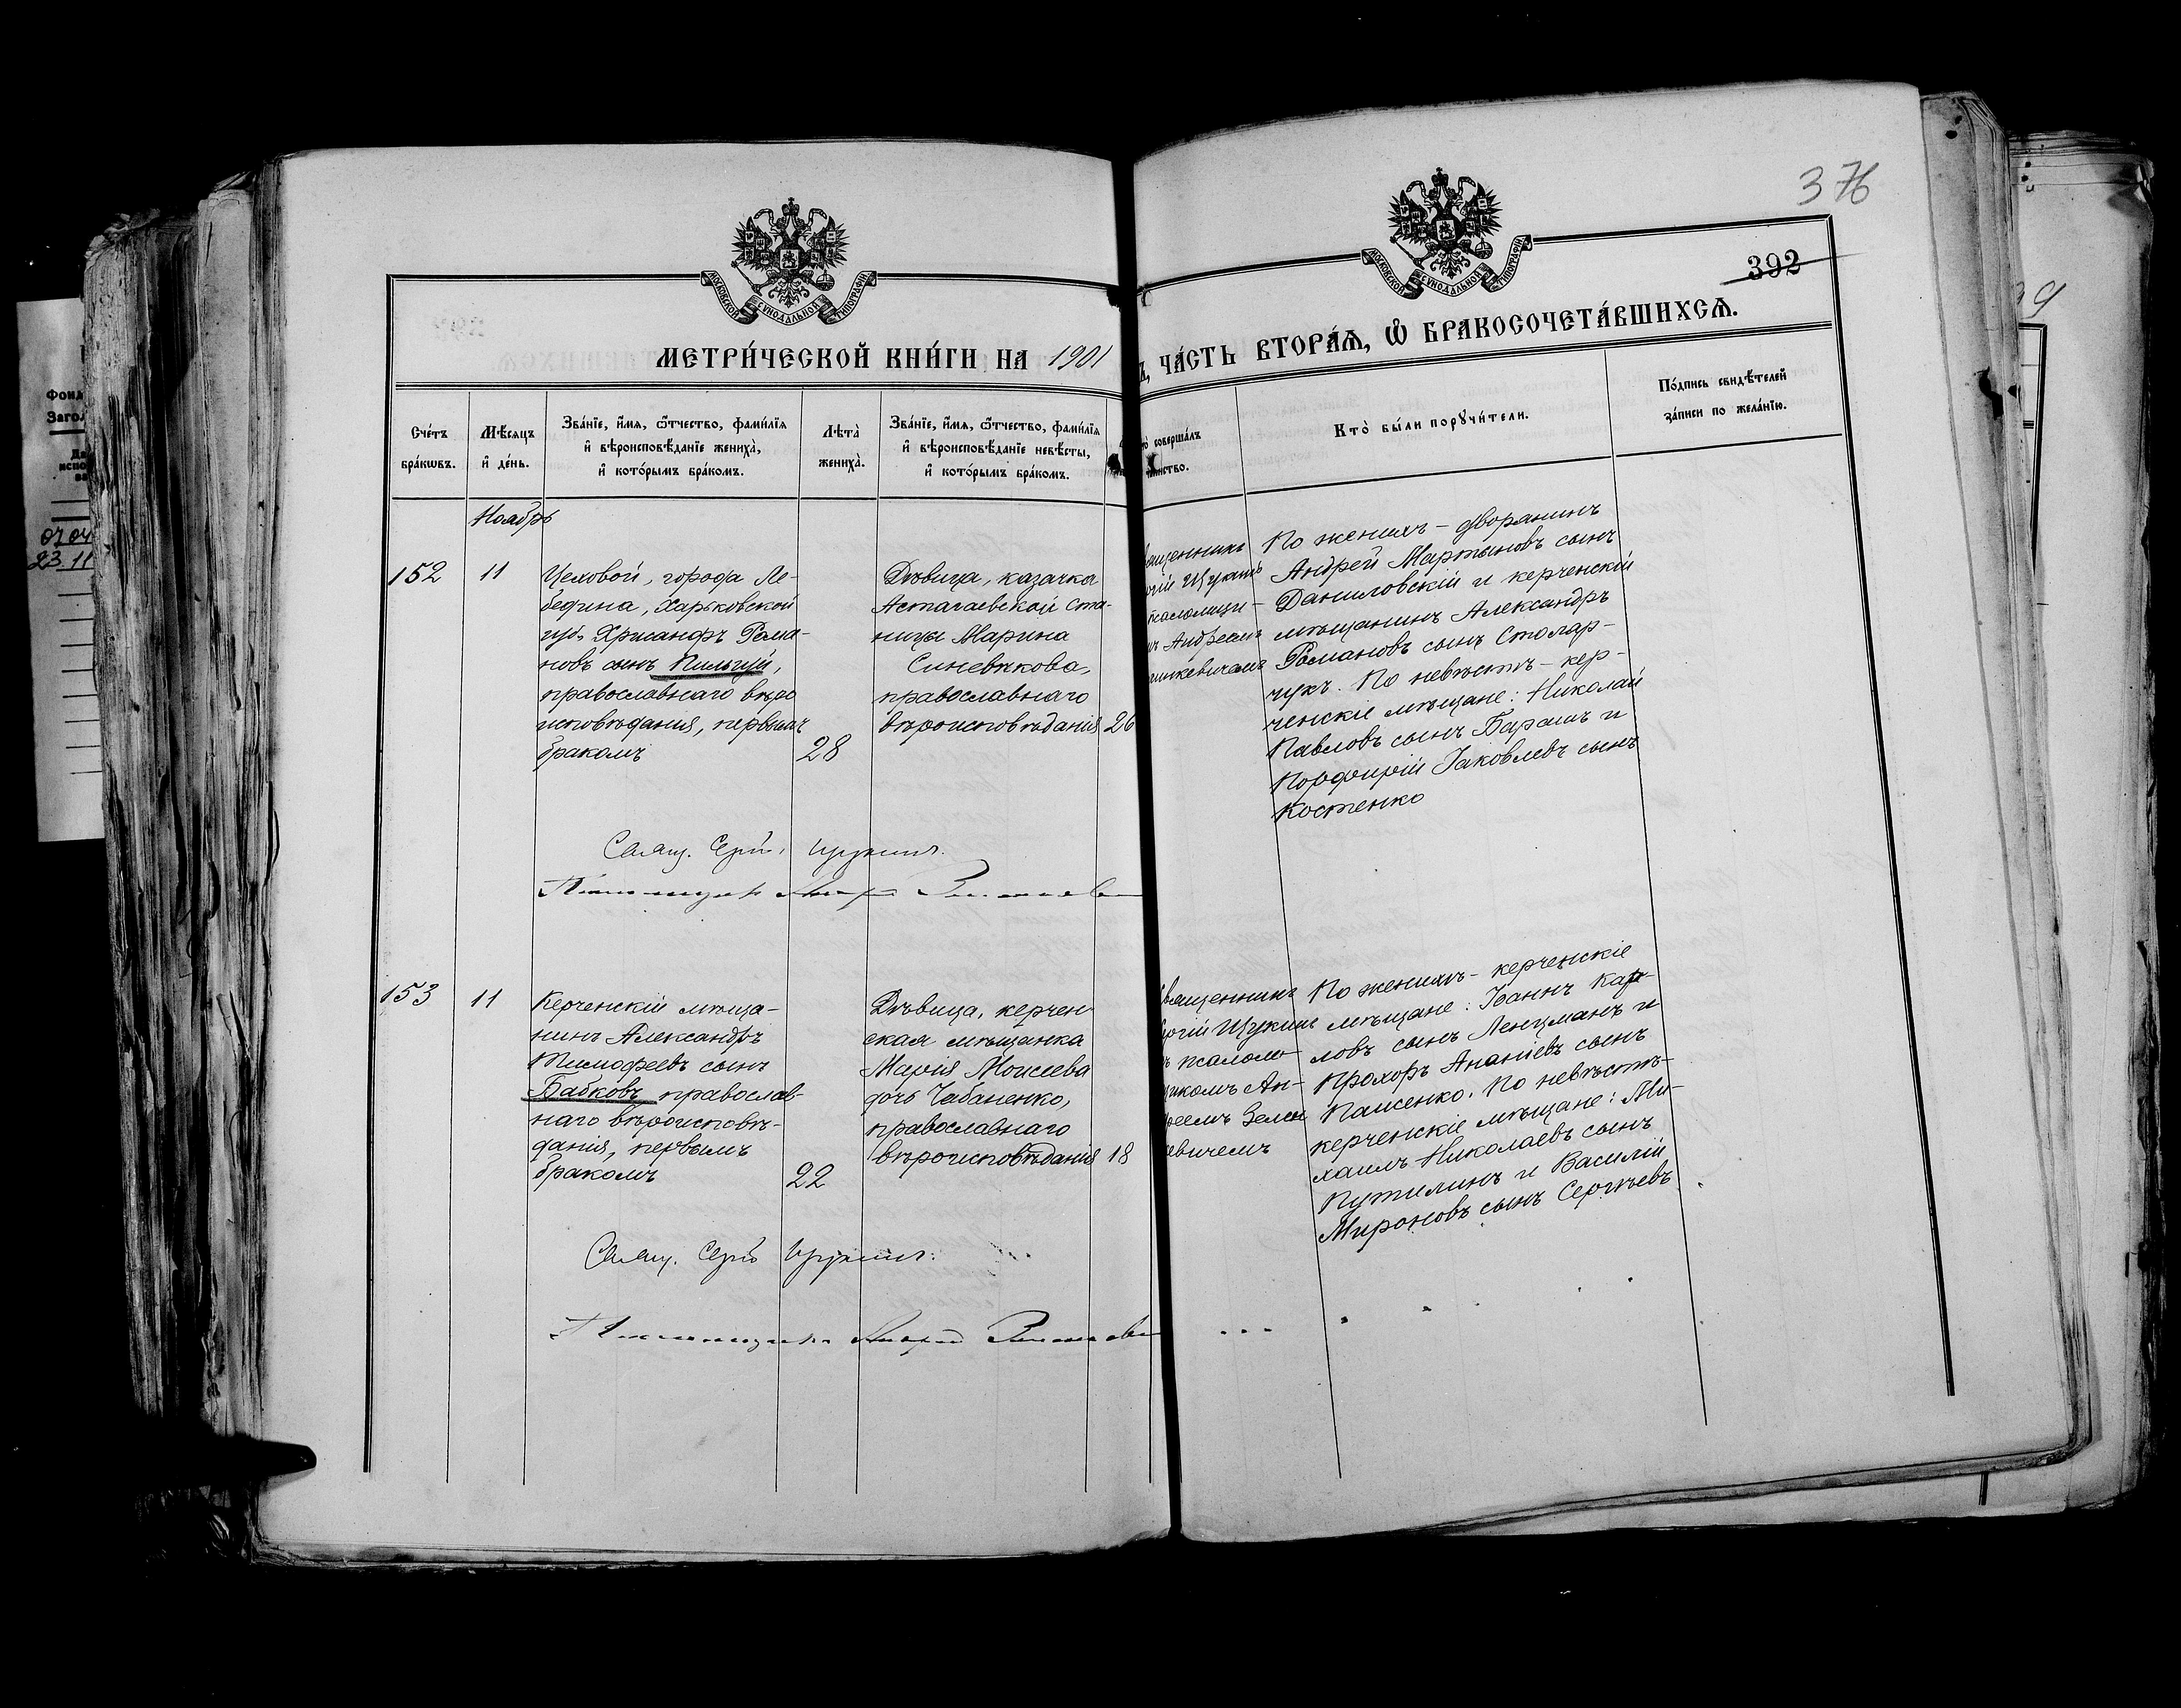 376
392
МОСКОВСКОЙ СѴНОДАЛЬНОЙ ТИПОГРАФІИ
МОСКОВСКОЙ СѴНОДАЛЬНОЙ ТИПОГРАФІИ
МЕТРИ́ЧЕСКОЙ КНИ́ГИ НА 1901
ЧА́СТЬ ВТОРА́Ѧ, Ѽ БРАКОСОЧЕТА́ВШИХСѦ.
Сче́тъ
бра́кѡвъ.
Мѣ́сяцъ
и҆ де́нь.
Зва́нїе, и҆́мя, ѻ҆́тчество, фами́лїя
и҆ вѣроисповѣ́данїе жениха̀,
и҆ кото́рымъ бра́комъ.
Лѣта̀
жениха̀.
Зва́нїе, и҆́мя, ѻ҆́тчество, фами́лїя
и҆ вѣроисповѣ́данїе невѣ́сты,
и҆ кото́рымъ бра́комъ.
совершáлъ
Кто̀ бы́ли порꙋчи́тели.
По́дпись свидѣ́телей
за́писи по жела́нїю.
Ноябрь
152
11
Цеховой, города Ле-
бедина, Харьковской
губ. Хрисанфъ Рома-
новъ сынъ Пильгуй,
православнаго вѣро
исповѣданія, первымъ
бракомъ
28
Дѣвица, казачка
Ста-
ницы Марина
Синевикова,
православнаго
вѣроисповѣданія
26
Андреемъ
По женихѣ – дворянинъ
Андрей Мартыновъ сынъ
Даниловскій и керченскій
мѣщанинъ Александръ
Романовъ сынъ Столяр-
чукъ. По невѣстѣ – кер-
ченскіе мѣщане: Николай
Павловъ сынъ Барашъ и
Порфирій Іаковлевъ сынъ
Костенко
Свящ. Щукинъ.
Псаломщикъ Андрей
153
11
Керченскій мѣща-
нинъ Александръ
Тимофеевъ сынъ
Бабковъ, православ-
наго вѣроисповѣ-
данія, первымъ
бракомъ
22
Дѣвица, керчен
ская мѣщанка
Марія Моисеева
дочь Чабаненко,
православнаго
вѣроисповѣданія
18
Щукинъ
псалом
Ан-
По женихѣ – керченскіе
мѣщане: Іоаннъ Кар-
ловъ сынъ Ленцманъ и
Прохоръ Ананіевъ сынъ
Паисенко. По невѣстѣ-
керченскіе мѣщане: Ми-
хаилъ Николаевъ сынъ
Путилинъ и Василій
Мироновъ сынъ Сергѣевъ
Свящ. Щукинъ.
Псаломщикъ Андрей